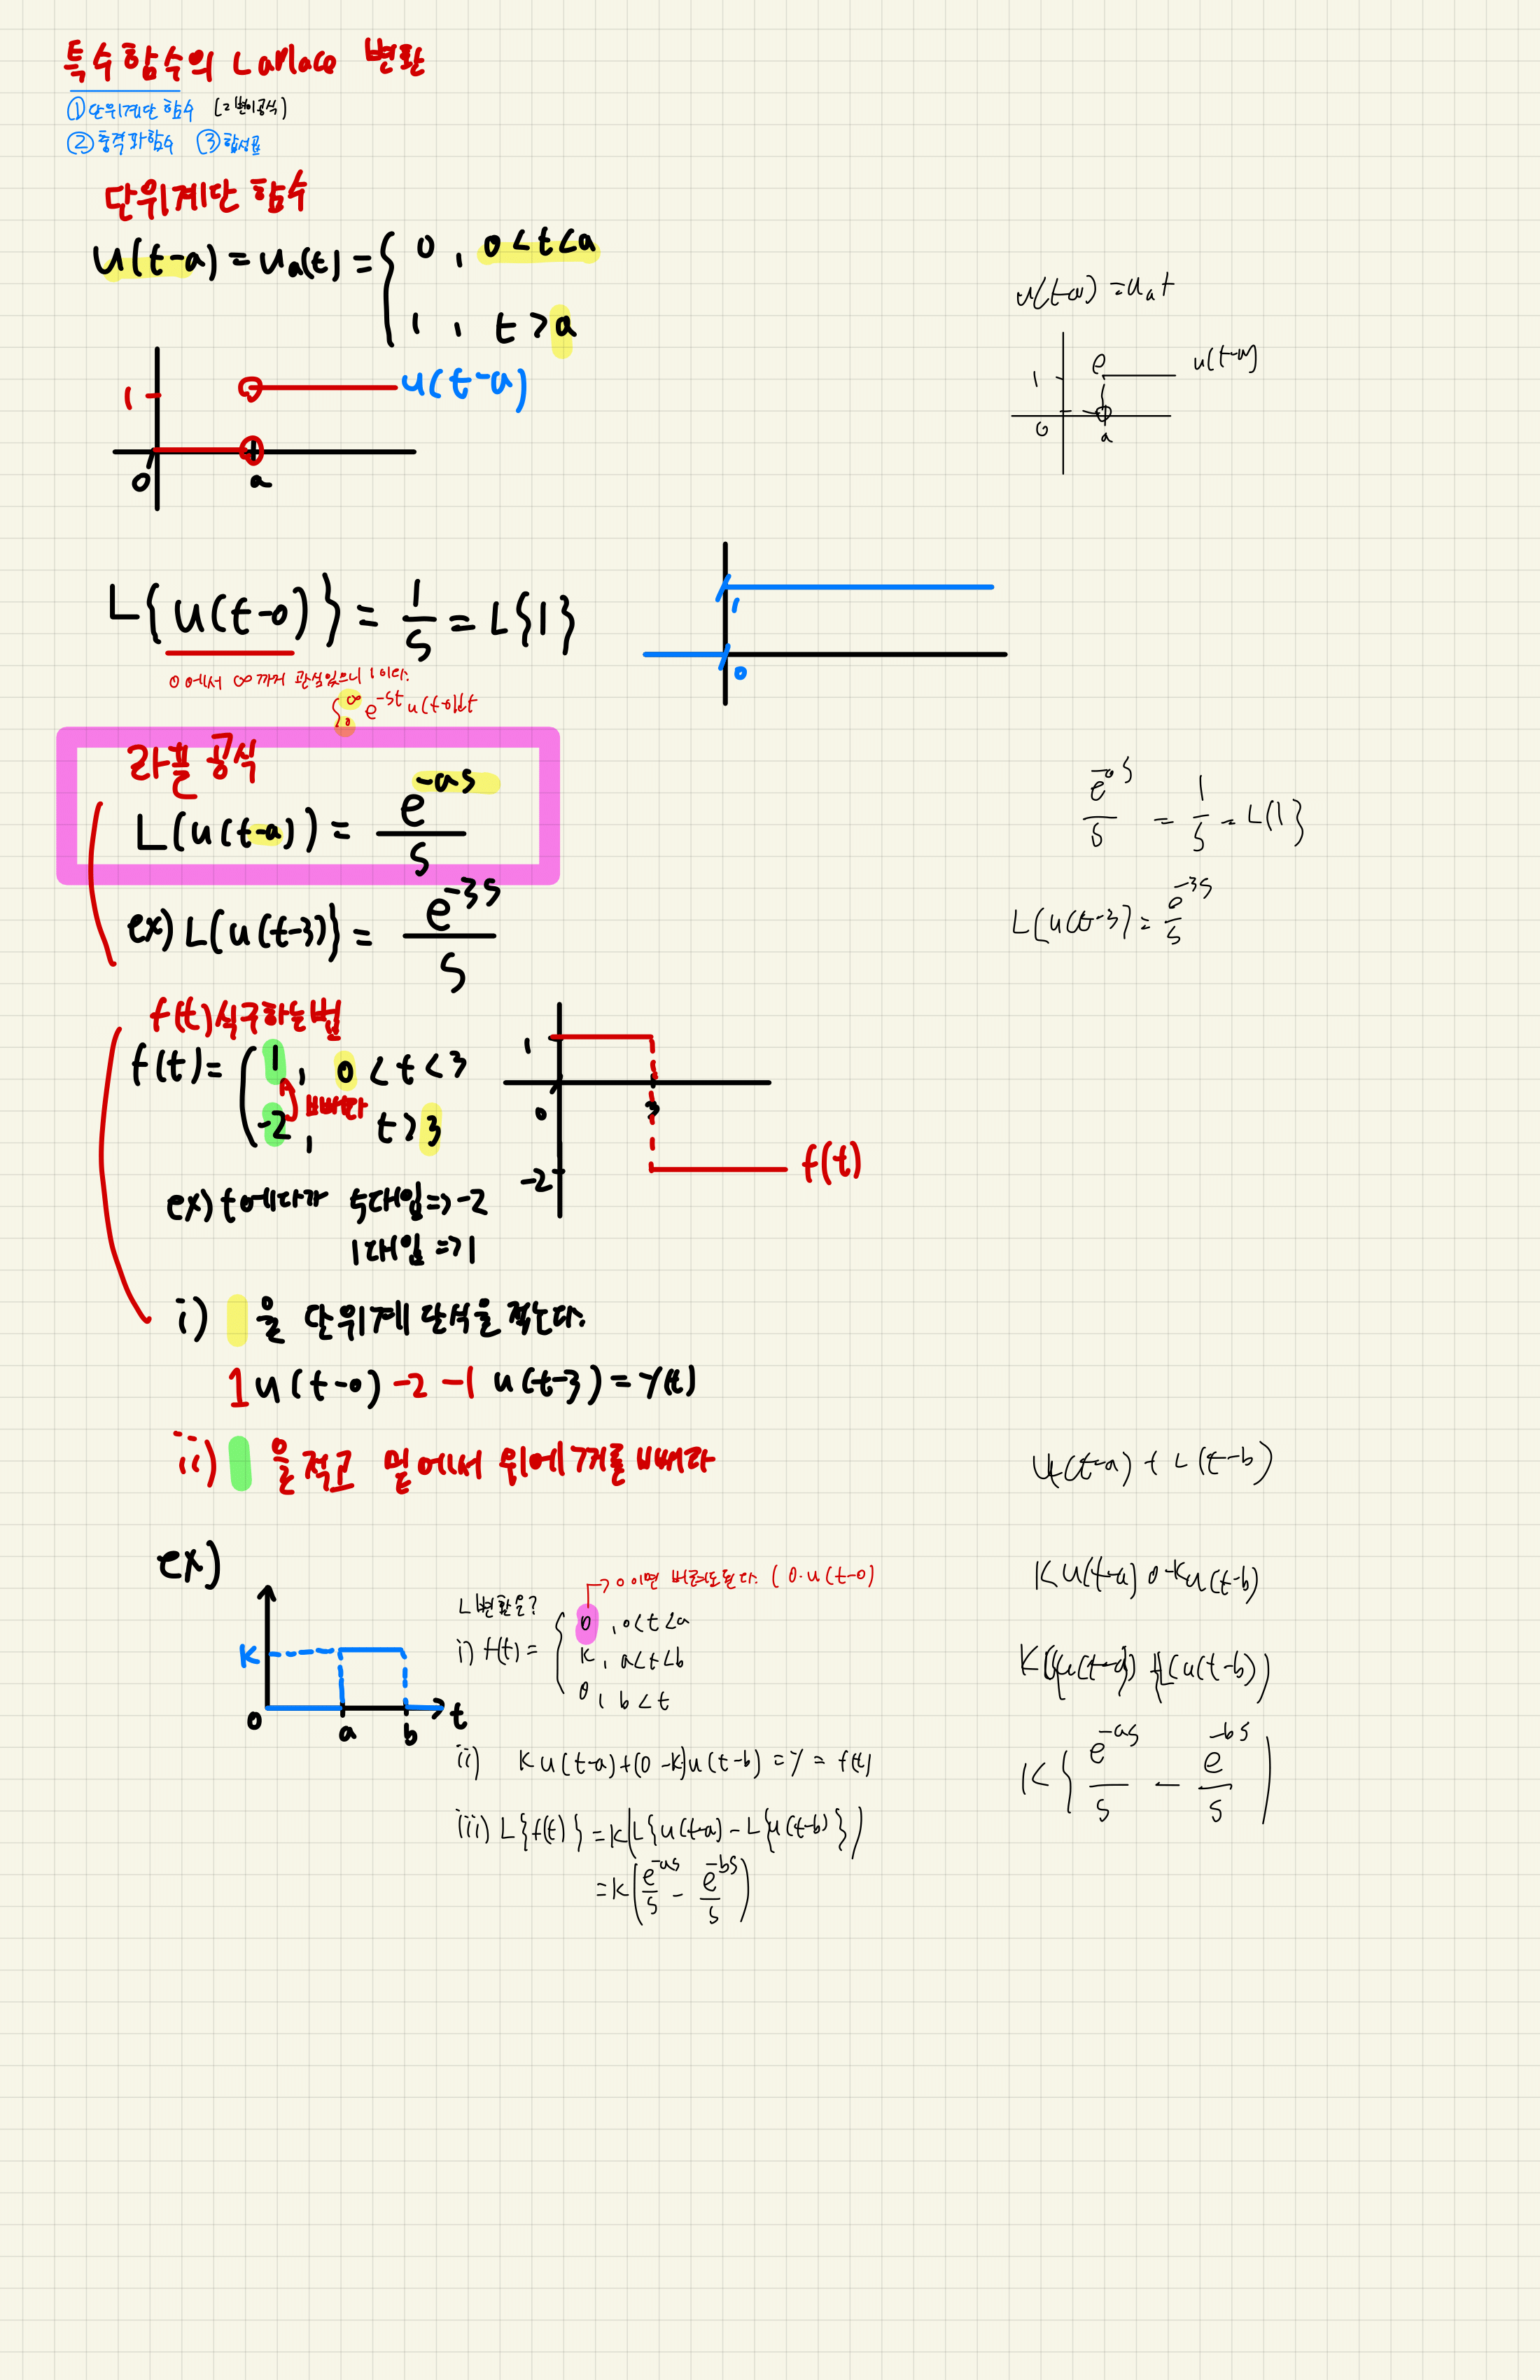 특수함수의 Laplace 변환
①단위계단 함수 (2변이공식)
②충격파함수 ③합성곱
단위계단 함수
u(t-a) = ua(t) = { 0 , 0<t<a
1 , t>a
1 u(t-a)
0 a
L{u(t-0)} = 1/s = L{1}
0에서 ∞까지 관심있으니 1이다.
∫0^∞ e^-st u(t-0)dt
1
0
라플 공식
L(u(t-a)) = e^-as/s
ex) L(u(t-3)} = e^-3s/s
f(t)식구하는법
f(t) = ( 1 , 0<t<3
빼다
-2 , t>3
1
0 3
-2 f(t)
ex) t에다가 5대입=>-2
1대입 =>1
i) 을 단위계단식을 적는다.
1u(t-0) -2 -1 u(t-3) = y(t)
ii) 을적고 밑에서 위에꺼를 빼다
ex)
K
0 a b t
L변환은?
→0이면 버려도된다. (0·u(t-0)
i) f(t) = { 0 , 0<t<a
K , a<t<b
0 , b<t
ii) K u(t-a)+(0-K)u(t-b) = y = f(t)
iii) L{f(t)} = K(L{u(t-a) - L{u(t-b)}})
= K(e^-as/s - e^-bs/s)
u(t-a) = ua t
1 u(t-a)
0 a
e^-0s/s = 1/s = L(1}
L(u(t-3) = e^-3s/s
(t-a) + L(t-b)
K u(t-a) 0-Ku(t-b)
K{ e^-as/s - e^-bs/s )